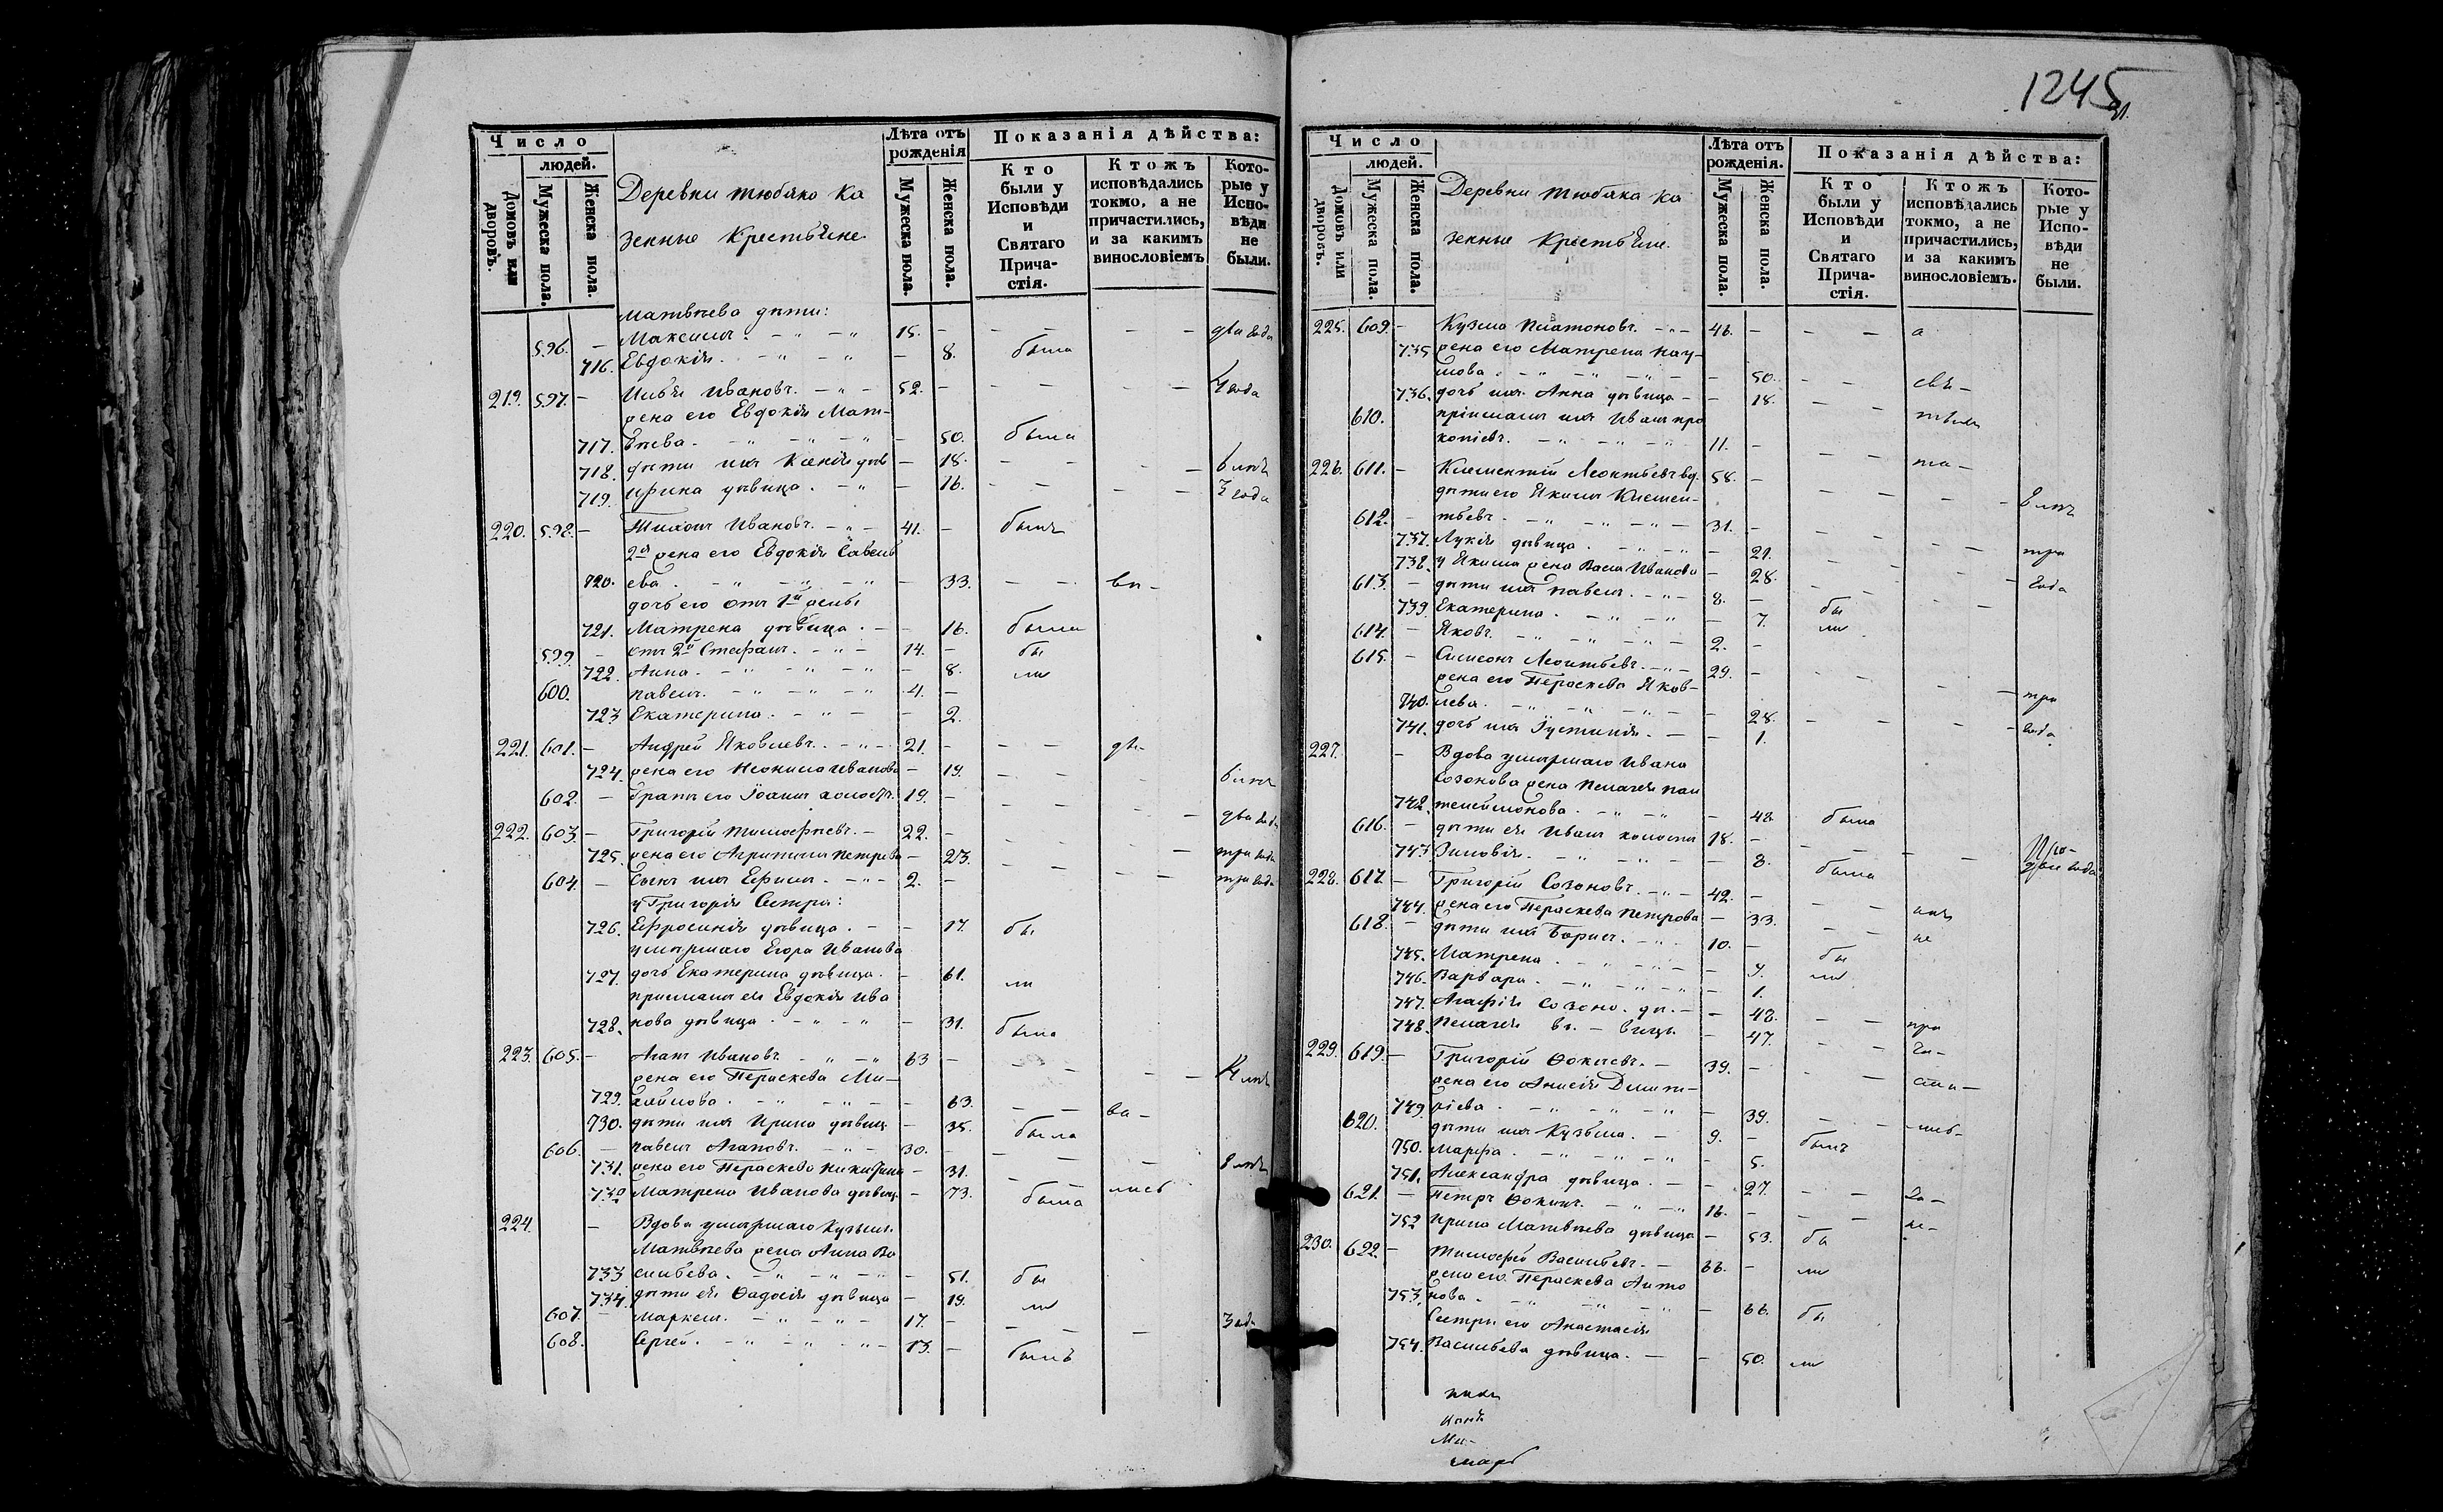 1245
Число
людей.
Домовъ или дворовъ.
Мужеска пола.
Женска пола.
Деревни Тюбяко Ка
зенные Крестьяне
Лѣта отъ рожденія
Мужеска пола.
Женска пола.
Показанія дѣйства:
Кто были у Исповѣди и Святаго Прича-стія.
Ктожъ исповѣдались токмо, а не причастились, и за какимъ винословіемъ
Кото-рые у Испо-вѣди не были.
Матвѣева дѣти:
596. – Максимъ. – " – " 15. – два года
716. Евдокія. – " – " – 8. была
219. 597. – Ивановъ. – " – 52. – 4 года
жена его Евдокія Мат-
717. вѣева. – " – " – " – 50. была
718. дѣти ихъ Ксенія дѣв – 18. 6 лѣтъ
719. Ирина дѣвица. – " – 16. 3 года
220. 598. – Тихонъ Ивановъ. – " – 41. – былъ
2я жена его Евдокія Савель
720. ева. – " – " – " – 33. – – ви-
дочь его отъ 1й жены
721. Матрена дѣвица. – – 16. была
599. – отъ 2й Стефанъ. – " – 14. – бы
722. Анна. – " – " – " – 8. ли
600. павелъ. – " – " – " 4. –
723 Екатерина. – " – – 2.
221. 601. – Андрей Яковлевъ. – " – 21. – – – дѣ-
724. жена его Неонила Иванова – 19. 6 лѣтъ
602. – братъ его Іоаннъ холостъ. 19. – два года
222. 603. – Григорій Тимофѣевъ. – 22. – три года
725. жена его Агрипина Петрова – 23. три года
604. – сынъ ихъ Ефимъ. – " – 2. –
у Григорія Сестра:
726. Ефросинія дѣвица. – – 17. бы
умершаго Егора Иванова
727. дочь Екатерина дѣвица. – 61. ли
приемышъ ея Евдокія Ива
728. нова дѣвица. – " – " – 31. была
223. 605. – Агапъ Ивановъ. – " – " 63 – 4 лѣтъ
жена его Пераскева Ми-
729. хайлова. – " – " – – 63. – – ва-
730. дѣти ихъ Ирина дѣвиц – 35. была
606. – павелъ Агаповъ. – " – 30. – 8 лѣтъ
731. жена его Пераскева Никифина – 31. – – лись
732 Матрена Иванова дѣвиц. – 73. была
224. – Вдова умершаго Кузьмы
Матвѣева жена Анна Ва
733 сильева. – " – " – " – 51. бы
734. дѣти ея Ѳадосія дѣвица – 19. ли
607. – маркелъ. – " – " – 17. – 3 года
608. Сергей. – " – " – " – 13. – былъ
Число
людей.
Домовъ или дворовъ.
Мужеска пола.
Женска пола.
Деревни Тюбяка Ка
зенные Крестьяне.
Лѣта отъ рожденія.
Мужеска пола.
Женска пола.
Показанія дѣйства:
Кто были у Исповѣди и Святаго Прича-стія.
Ктожъ исповѣдались токмо, а не причастились, и за какимъ винословіемъ.
Кото-рые у Испо-вѣди не были.
225. 609. – Кузма Платоновъ. – " – 46. – – – а
735 жена его Матрена Нау-
мова. – " – " – " – – 50. – – свѣ-
736. дочь ихъ Анна дѣвица – – 18.
610. пріемышъ ихъ Иванъ про
копіевъ. – " – " – " 11. –
226. 611. – Климентій Леонтьевъ вд. 58. – 8 лѣтъ
дѣти его Якимъ Клемен-
612. – тьевъ. – " – " – " – 31. – три
737. Лукія дѣвица. – " – " – 21.
738. у Якима жена Васса Иванова – 28. года
613. – дѣти ихъ павелъ. – " – 8. –
739. Екатерина. – " – " – 7. бы
614. – Яковъ. – " – " – " – 2. – ли
615. – Симеонъ Леонтьевъ. – " – 29. – три
жена его Пераскева Яков-
740. лева. – " – " – " – – 28. года
741. дочь ихъ Іустинія. – – 1.
227. – Вдова умершаго Ивана
Созонова жена Пелагея пан
742. телеймонова. – " – " – 48 была
616. – дѣти ея Иванъ холостъ 18. –
743 Зиновія. – " – " – – 8. была
228. 617. – Григорій Созоновъ. – " – 42. –
744. жена его Пераскева Петрова – 33.
618. – дѣти ихъ Борисъ. – " – 10. – бы
745. Матрена. – " – " – – 4. ли
746. Варвара. – " – " – " – 1.
747. Агафія Созоно. дѣ. – – 48. – – при
748. Пелагея въ. – вицы – 47. – – ча-
229. 619. – Григорій Ѳокіевъ. – 39. – – сти-
жена его Анисія Димит-
749. ріева. – " – " – " – 39. – лись-
620. дѣти ихъ Кузьма. – 9. – былъ
750. марфа. – " – " – " – 5.
751. Александра дѣвица. – – 27. – – за-
621. – Петръ Ѳокинъ. – " – " 16. –
752 Ирина Матвѣева дѣвица – 53. бы
230. 622. – Тимофей Васильевъ. – 66. – ли
жена его Пераскева Анто
753. нова. – " – " – " – 66. бы
Сестра его Анастасія
754. Васильева дѣвица. – – 50. ли